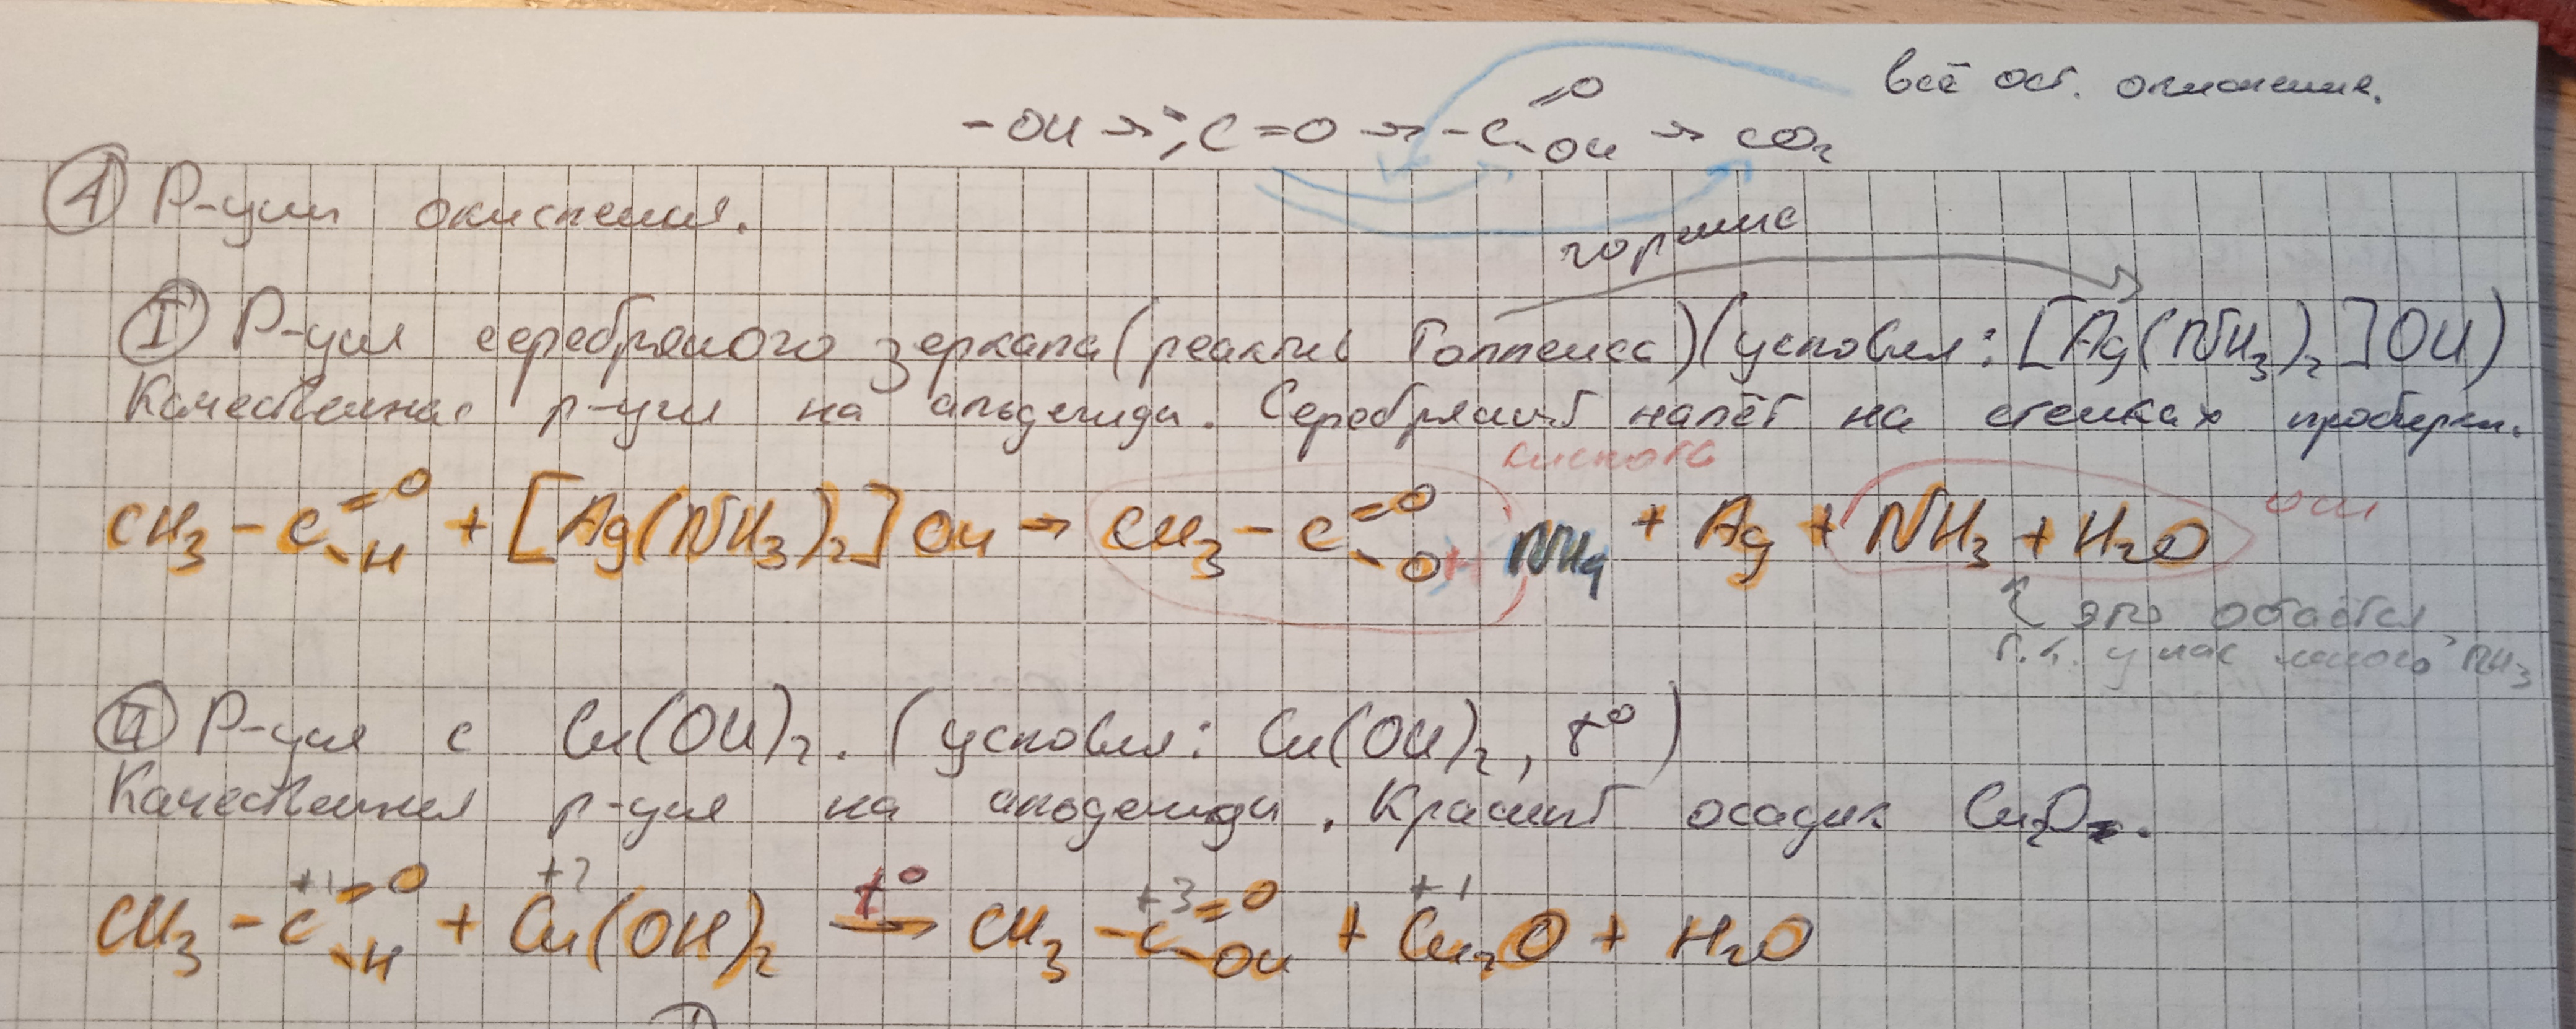 всё ост. окисления.
-OH → C=O → -C=O OH → CO₂
④ Р-ции окисления.
горение
Ⓘ Р-ция серебряного зеркала (реактив Толленса) (условия: [Ag(NH₃)₂]OH)
Качественная р-ция на альдегиды. Серебряный налёт на стенках пробирки.
кислота
CH₃-C=O-H + [Ag(NH₃)₂]OH → CH₃-C=O-OH NH₄ + Ag + NH₃ + H₂O
это остаётся
т.к. у нас много NH₃
Ⅱ Р-ция с Cu(OH)₂. (условия: Cu(OH)₂, t°)
Качественная р-ция на альдегиды. Красный осадок Cu₂O.
+1 +2 t° +3 +1
CH₃-C=O-H + Cu(OH)₂ → CH₃-C=O-OH + Cu₂O + H₂O